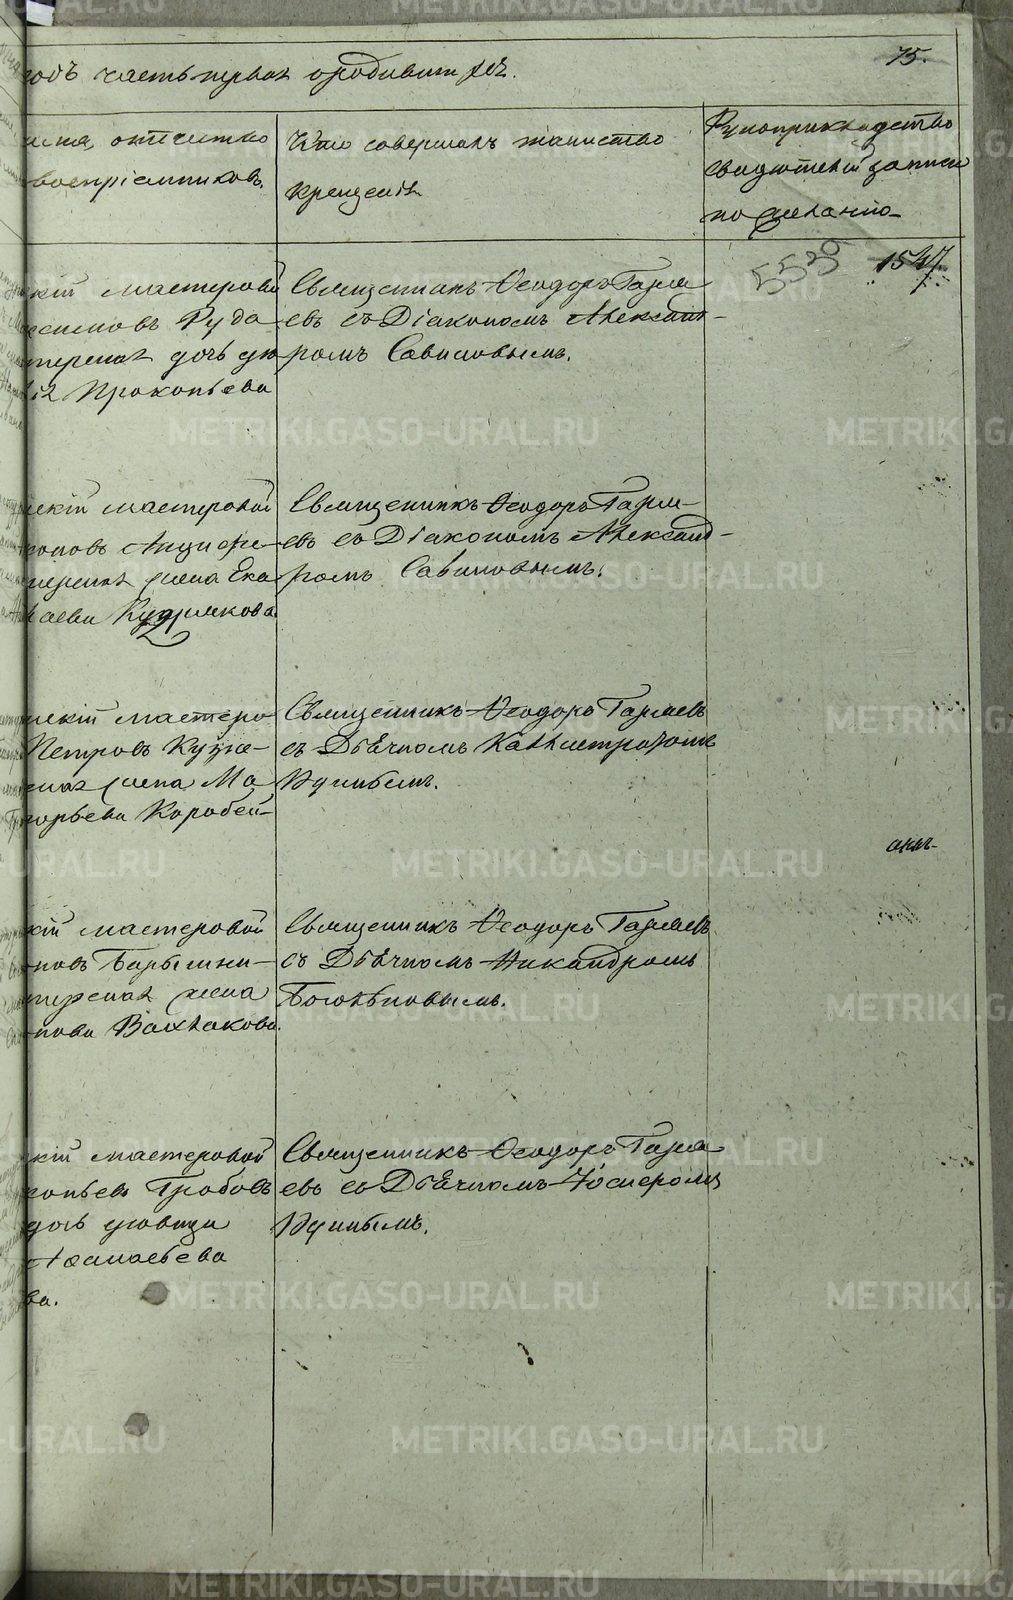 75.
годъ часть первая о родившихся.
имя, отчество
воспріемниковъ.
Кто совершалъ таинство
крещенія
Рукоприкладство
свидетелей записи
по желанію
5529
1547.
кій мастеровой
симовъ Руда
терская дочь дю
Прокопьева
Священникъ Ѳеодоръ Гаряе
евъ съ Діакономъ Александ-
ромъ Савиновымъ.
скій мастеровой
оновъ Анцифе-
терская жена Ека
аева Кудрякова
Священникъ Ѳеодоръ Гаря-
евъ съ Діакономъ Александ-
ромъ Савиновымъ.
скій мастеро
Петровъ Кузне-
жена Ма
горьева Коробей-
Священникъ Ѳеодоръ Гаряевъ
съ Дьячкомъ Каллистратомъ
Удинымъ.
кій мастеровой
новъ Барышни-
терская жена
пова Валхакова.
Священникъ Ѳеодоръ Гаряевъ
съ Дьячкомъ Никандромъ
Боголѣповымъ.
скій мастеровой
копьевъ Гробовъ
дочь девица
Афанасьева
ва.
Священникъ Ѳеодоръ Гаря
евъ съ Дьячкомъ
Удинымъ.
METRIKI.GASO-URAL.RU